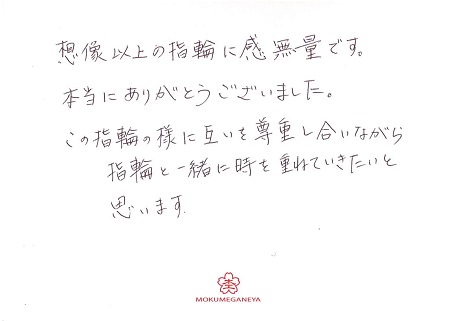 想像以上の指輪に感無量です。
本当にありがとうございました。
この指輪の様に互いを尊重し合いながら
指輪と一緒に時を重ねていきたいと
思います.
MOKUMEGANEYA